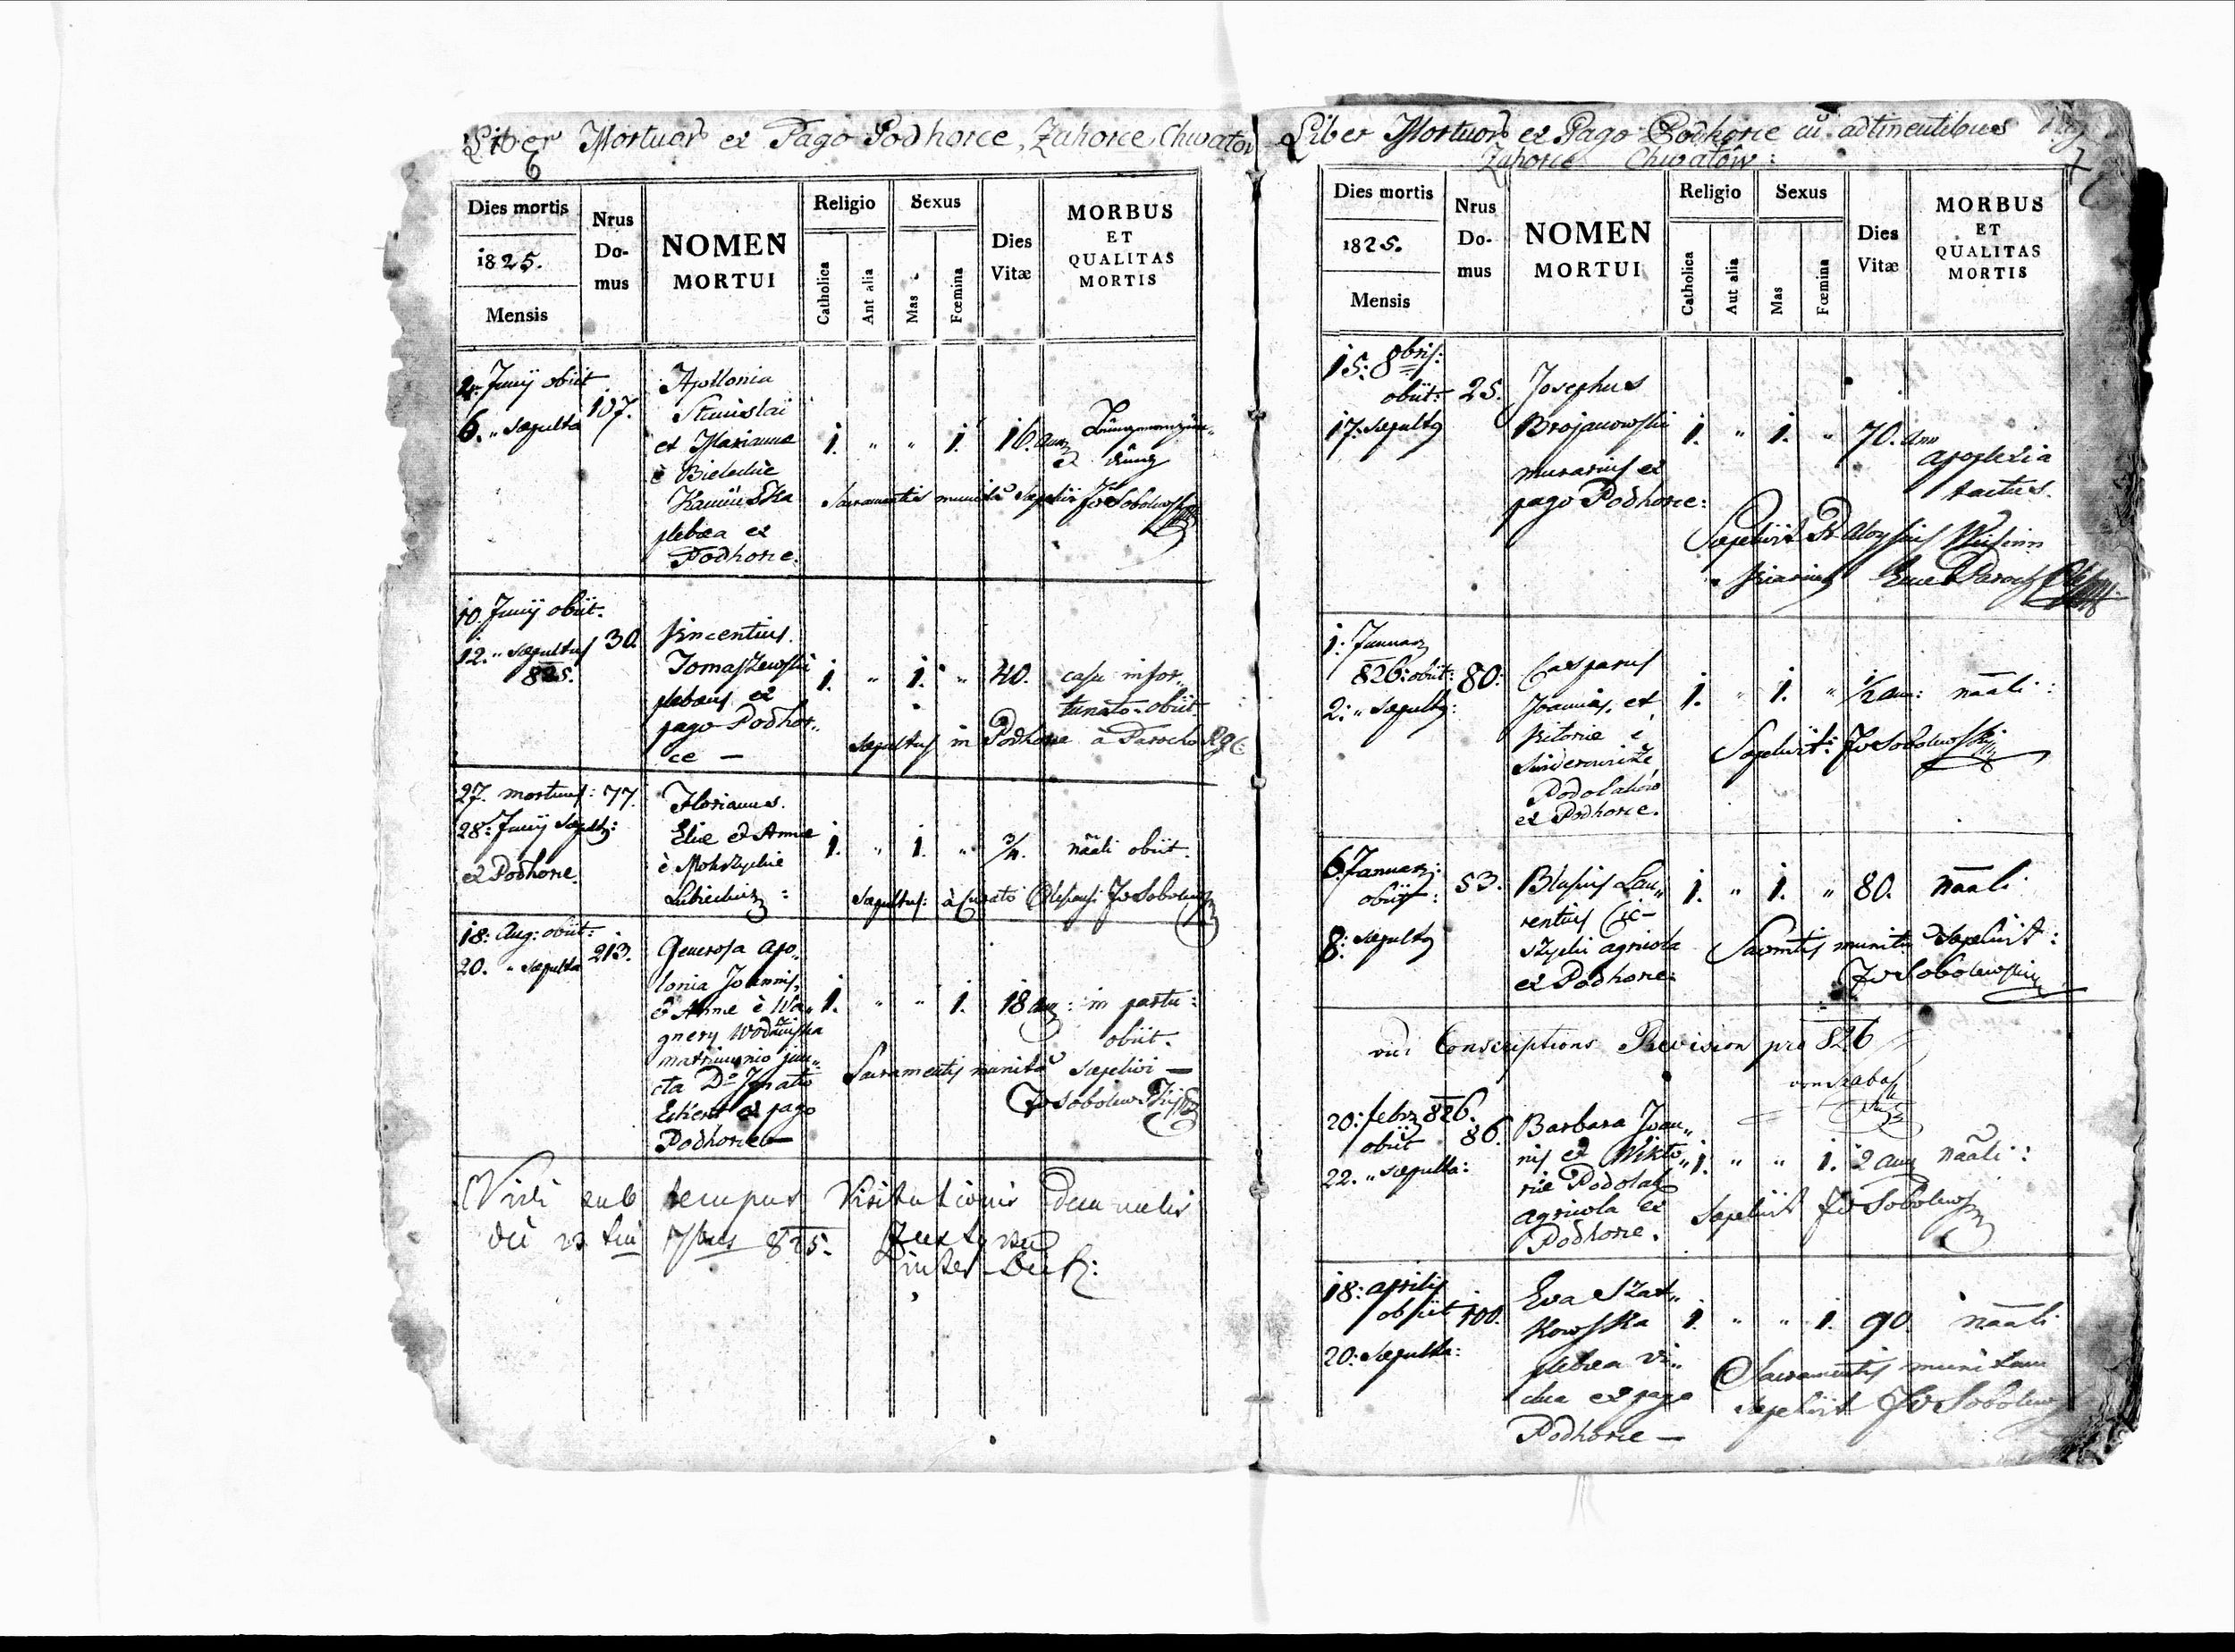 Liber Mortuor ex Pago Podhorce, Zahorce Chwatow
6
Dies mortis
1825.
Mensis
Nrus Do-mus
NOMEN MORTUI
Religio
Catholica
Aut alia
Sexus
Mas
Fœmina
Dies Vitæ
MORBUS ET QUALITAS MORTIS
4. Junij obiit
6. " sepulta
107.
Apollonia
Stanislai
et Marianna
è Bieleckie
Kamińska
plebæa ex
Podhorce.
1. " " 1. 16. ann
Sacramentis munitã sepelivi JvSobolewski
10. Junij obiit.
12. " sepultus
825.
30.
Vincentius.
Tomaszewski
plebeus ex
pago Podhor„
ce —
1. " 1. " 40. casu infor„
tunato obiit.
sepultus in Podhorce à Parocho RgC.
27. mortuus: 77.
28: Junij sepultg:
ex Podhorce.
Florianus.
Eliæ et Annæ
è
1. " 1. " 3/4. nãali obiit.
sepultus: à Curato JvSobolewski
18: Aug: obiit:
20. " sepulta
213.
Generosa Apo„
lonia Joannis,
et Annæ è Wa„
gnery
matrimonio jun„
cta Do Ignatio
ex pago
Podhorce —
1. " " 1. 18 an: in partu
obiit.
Sacramentis munitã sepelivi —
JvSobolewski
Vidi sub tempus Visitationis Decanalis
die 23 7bris 825.
Liber Mortuor ex Pago Podhorce cũ adtinentibus
Zahorce Chwatów:
7
Dies mortis
1825.
Mensis
Nrus Do-mus
NOMEN MORTUI
Religio
Catholica
Aut alia
Sexus
Mas
Fœmina
Dies Vitæ
MORBUS ET QUALITAS MORTIS
15: 8bris:
obiit:
17: sepultg
25.
Josephus
Brojanowski
murarius ex
pago Podhorce:
1. " 1. " 70. Ann
apoplexia
tactus.
Sepelivit P. Aloysius
1: Januar
826: obiit:
2: " sepultg:
80:
Casparus
Joannis, et
Victoriæ è
Podolaków
ex Podhorce.
1. " 1. " 1/2 an: nãali:
Sepelivit: JvSobolewski
6. Januar:
obiit:
8: sepultg
53.
Blasius Lau„
rentius Cic-
szycki agricola
ex Podhorce:
1. " 1. " 80. nãali
munitũ sepelivit:
JvSobolewski
vidi Conscriptions Revision pro 826
20: febr 826.
obiit
22. " sepulta:
86.
Barbara Joan„
nis et Wikto„
riæ Podolak
agricola ex
Podhorce.
1. " " 1. 2 an nãali:
Sepelivit JvSobolewski
18: aprilis
obiit
20: sepulta:
100.
Eva Szat„
kowska
plebæa vi„
dua ex pago
Podhorce —
1. " " 1. 90. nãali
Sacramentis munitam
sepelivit JvSobolewski